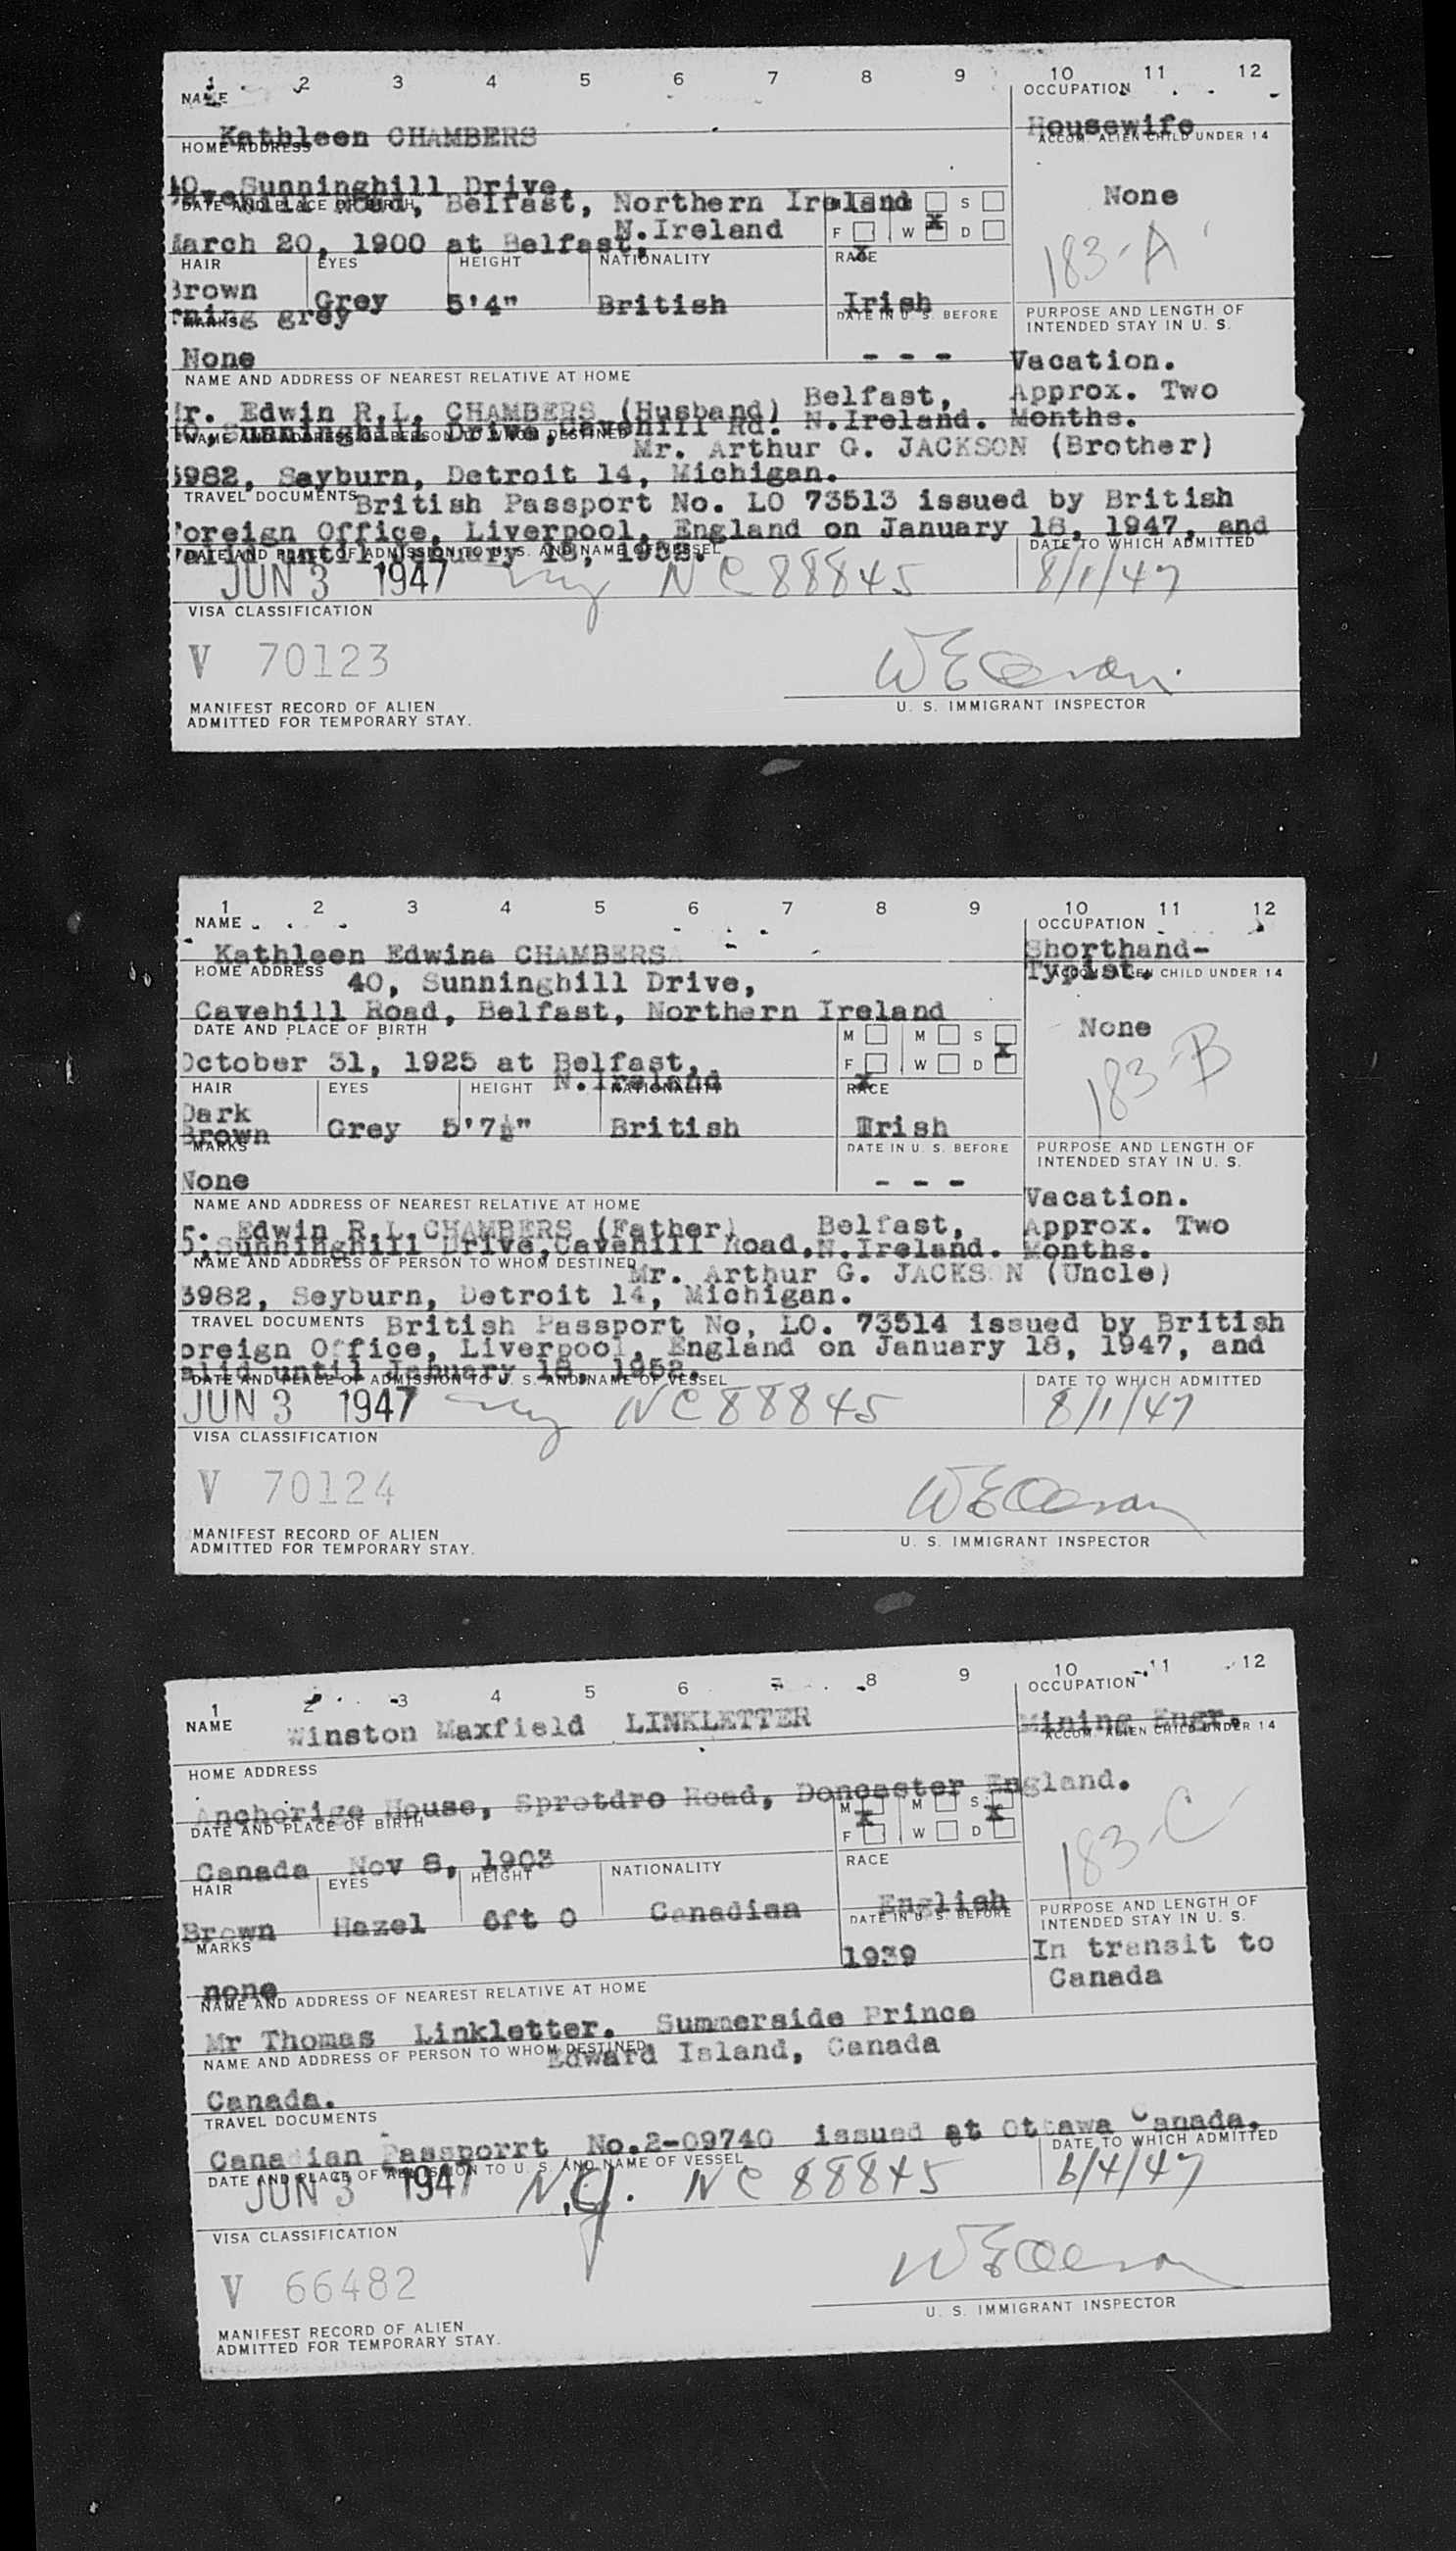 1 2 3 4 5 6 7 8 9 10 11 12
NAME OCCUPATION
Kathleen CHAMBERS Housewife
HOME ADDRESS ACCOM. ALIEN CHILD UNDER 14
40, Sunninghill Drive,
Road, Belfast, Northern Ireland S None
DATE AND PLACE OF BIRTH
March 20, 1900 at Belfast, N.Ireland F W X D
183-A
HAIR EYES HEIGHT NATIONALITY RACE X
Brown
rning grey Grey 5'4" British Irish
MARKS DATE IN U. S. BEFORE PURPOSE AND LENGTH OF
INTENDED STAY IN U. S.
None - - - Vacation.
NAME AND ADDRESS OF NEAREST RELATIVE AT HOME
Mr. Edwin R.L. CHAMBERS (Husband) Belfast, Approx. Two
Sunninghill Drive, Cavehill Rd. N.Ireland. Months.
NAME AND ADDRESS OF PERSON TO WHOM DESTINED
Mr. Arthur G. JACKSON (Brother)
3982, Seyburn, Detroit 14, Michigan.
TRAVEL DOCUMENTS British Passport No. LO 73513 issued by British
Foreign Office, Liverpool, England on January 18, 1947, and
valid until January 18, 1952.
DATE AND PLACE OF ADMISSION TO U. S. AND NAME OF VESSEL DATE TO WHICH ADMITTED
JUN 3 1947 ny NC 88845 8/1/47
VISA CLASSIFICATION
V 70123
MANIFEST RECORD OF ALIEN U. S. IMMIGRANT INSPECTOR
ADMITTED FOR TEMPORARY STAY.
1 2 3 4 5 6 7 8 9 10 11 12
NAME OCCUPATION
Kathleen Edwina CHAMBERS Shorthand-
Typist.
HOME ADDRESS ACCOM. ALIEN CHILD UNDER 14
40, Sunninghill Drive,
Cavehill Road, Belfast, Northern Ireland
DATE AND PLACE OF BIRTH M M S None
October 31, 1925 at Belfast, F W D X
N.Ireland
183-B
HAIR EYES HEIGHT NATIONALITY RACE X
Dark
Brown Grey 5'7½" British Irish
MARKS DATE IN U. S. BEFORE PURPOSE AND LENGTH OF
INTENDED STAY IN U. S.
None - - - Vacation.
NAME AND ADDRESS OF NEAREST RELATIVE AT HOME
Edwin R.L. CHAMBERS (Father) Belfast, Approx. Two
Sunninghill Drive, Cavehill Road, N.Ireland. Months.
NAME AND ADDRESS OF PERSON TO WHOM DESTINED
Mr. Arthur G. JACKSON (Uncle)
3982, Seyburn, Detroit 14, Michigan.
TRAVEL DOCUMENTS British Passport No, LO. 73514 issued by British
oreign Office, Liverpool, England on January 18, 1947, and
alid until January 18, 1952.
DATE AND PLACE OF ADMISSION TO U. S. AND NAME OF VESSEL DATE TO WHICH ADMITTED
JUN 3 1947 ny NC 88845 8/1/47
VISA CLASSIFICATION
V 70124
MANIFEST RECORD OF ALIEN U. S. IMMIGRANT INSPECTOR
ADMITTED FOR TEMPORARY STAY.
1 2 3 4 5 6 7 8 9 10 11 12
NAME Winston Maxfield LINKLETTER OCCUPATION
Mining Engr.
HOME ADDRESS ACCOM. ALIEN CHILD UNDER 14
Anchorige House, Sprotdro Road, Doncaster England.
DATE AND PLACE OF BIRTH M X M S X
Canada Nov 8, 1903 F W D
183-C
HAIR EYES HEIGHT NATIONALITY RACE
Brown Hazel 6ft 0 Canadian English
MARKS DATE IN U. S. BEFORE PURPOSE AND LENGTH OF
INTENDED STAY IN U. S.
none 1939 In transit to
Canada
NAME AND ADDRESS OF NEAREST RELATIVE AT HOME
Mr Thomas Linkletter. Summerside Prince
NAME AND ADDRESS OF PERSON TO WHOM DESTINED Edward Island, Canada
Canada.
TRAVEL DOCUMENTS
Canadian Passporrt No.2-09740 issued at Ottawa Canada.
DATE AND PLACE OF ADMISSION TO U. S. AND NAME OF VESSEL DATE TO WHICH ADMITTED
JUN 3 1947 N.Y. NC 88845 6/4/47
VISA CLASSIFICATION
V 66482
MANIFEST RECORD OF ALIEN U. S. IMMIGRANT INSPECTOR
ADMITTED FOR TEMPORARY STAY.